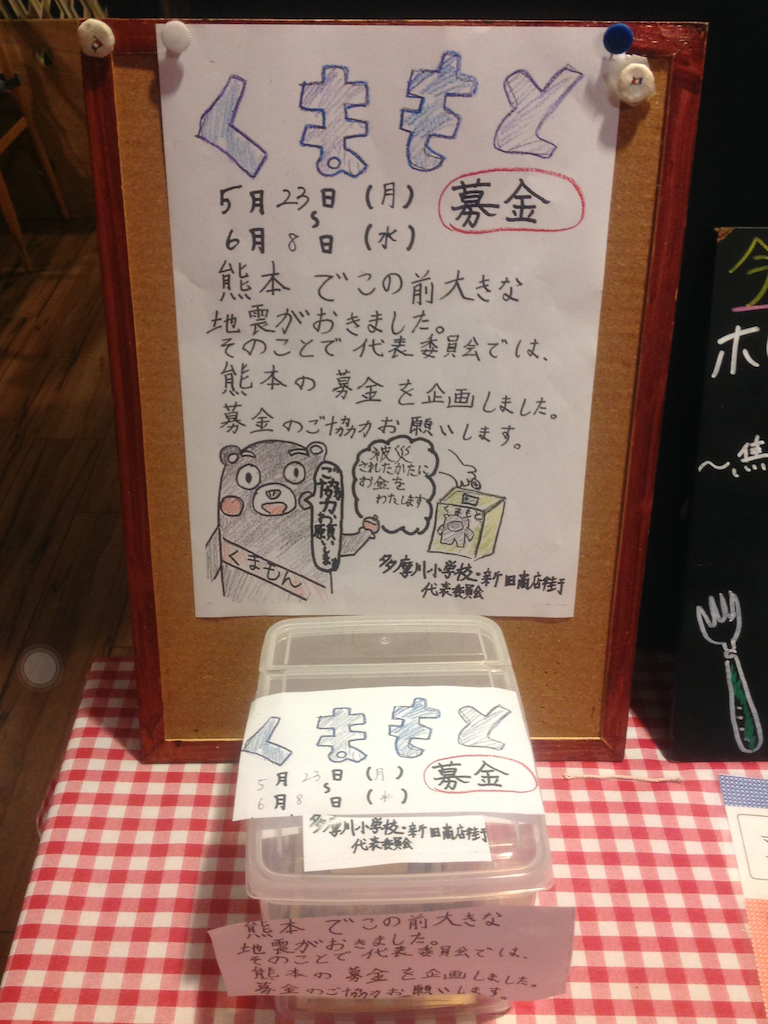 くまもと
5月23日(月)
〜
6月8日(水)
募金
熊本でこの前大きな
地震がおきました。
そのことで代表委員会では、
熊本の募金を企画しました。
募金のご協力お願いします。
ご協力お願いしま
くまもん
被災
されたかたに
お金を
わたします
くまもと
多摩川小学校・新旧商店街
代表委員会
くまもと
5月23日(月)
〜
6月8日(水)
募金
多摩川小学校・新旧商店街
代表委員会
熊本でこの前大きな
地震がおきました。
そのことで代表委員会では、
熊本の募金を企画しました。
募金のご協力お願いします。
今
ホ
〜焦